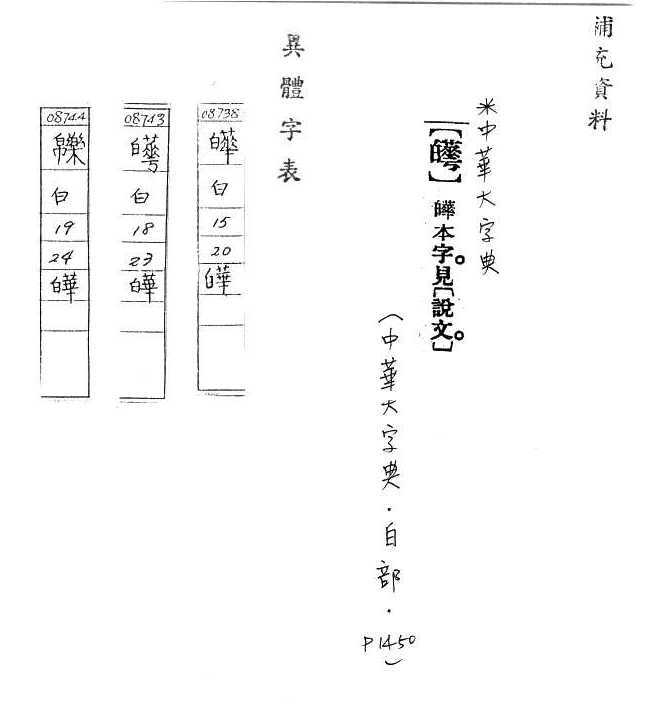 補充資料
※中華大字典
【】皣本字。見【說文。】
（中華大字典．白部．P1450）
異體字表
08738
白
15
20
皣
08743
白
18
23
皣
08744
白
19
24
皣